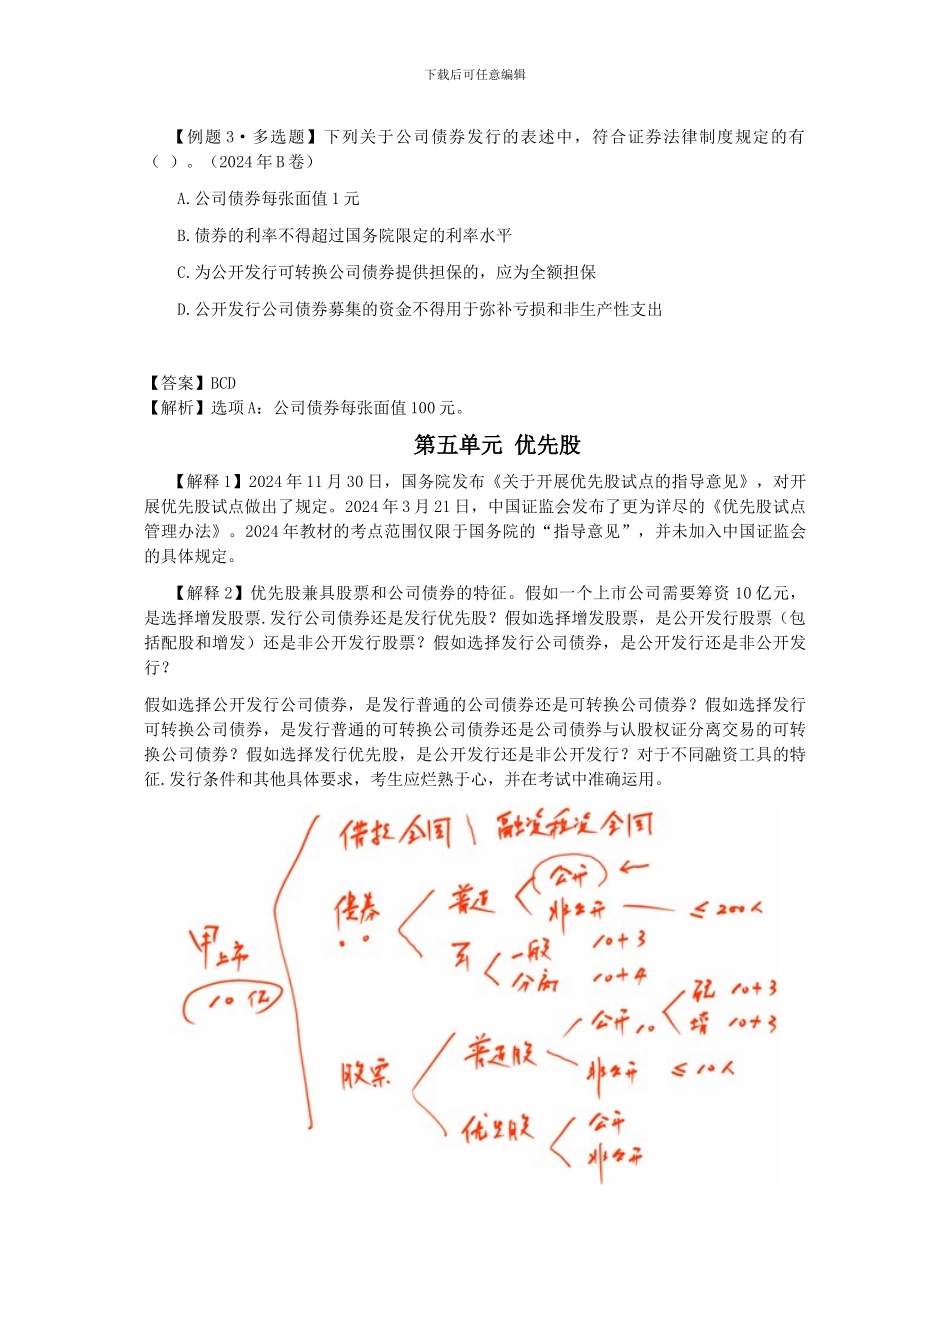 下载后可任意编辑
【例题 3·多选题】下列关于公司债券发行的表述中，符合证券法律制度规定的有
（ ）。（2024 年 B 卷）
A.公司债券每张面值 1 元
B.债券的利率不得超过国务院限定的利率水平
C.为公开发行可转换公司债券提供担保的，应为全额担保
D.公开发行公司债券募集的资金不得用于弥补亏损和非生产性支出
【答案】BCD
【解析】选项 A：公司债券每张面值 100 元。
第五单元 优先股
【解释 1】2024 年 11 月 30 日，国务院发布《关于开展优先股试点的指导意见》，对开
展优先股试点做出了规定。2024 年 3 月 21 日，中国证监会发布了更为详尽的《优先股试点
管理办法》。2024 年教材的考点范围仅限于国务院的“指导意见”，并未加入中国证监会
的具体规定。
【解释 2】优先股兼具股票和公司债券的特征。假如一个上市公司需要筹资 10 亿元，
是选择增发股票.发行公司债券还是发行优先股？假如选择增发股票，是公开发行股票（包
括配股和增发）还是非公开发行股票？假如选择发行公司债券，是公开发行还是非公开发
行？
假如选择公开发行公司债券，是发行普通的公司债券还是可转换公司债券？假如选择发行
可转换公司债券，是发行普通的可转换公司债券还是公司债券与认股权证分离交易的可转
换公司债券？假如选择发行优先股，是公开发行还是非公开发行？对于不同融资工具的特
征.发行条件和其他具体要求，考生应烂熟于心，并在考试中准确运用。
借款合同 \ 融资租赁合同
债券 普通 公开
非公开 ≤200人
一般 10+3
分离 10+4
甲上市
10亿
股票 普通股 公开 10 配 10+3
增 10+3
非公开 ≤10人
优先股 公开
非公开